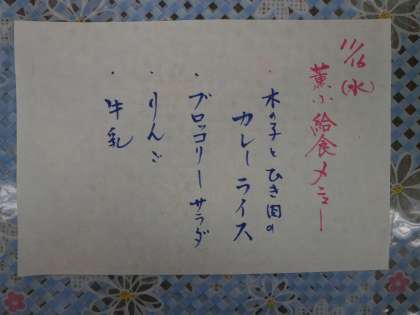 11/16(水)
薫小給食メニュー
・木の子とひき肉の
カレーライス
・ブロッコリーサラダ
・りんご
・牛乳